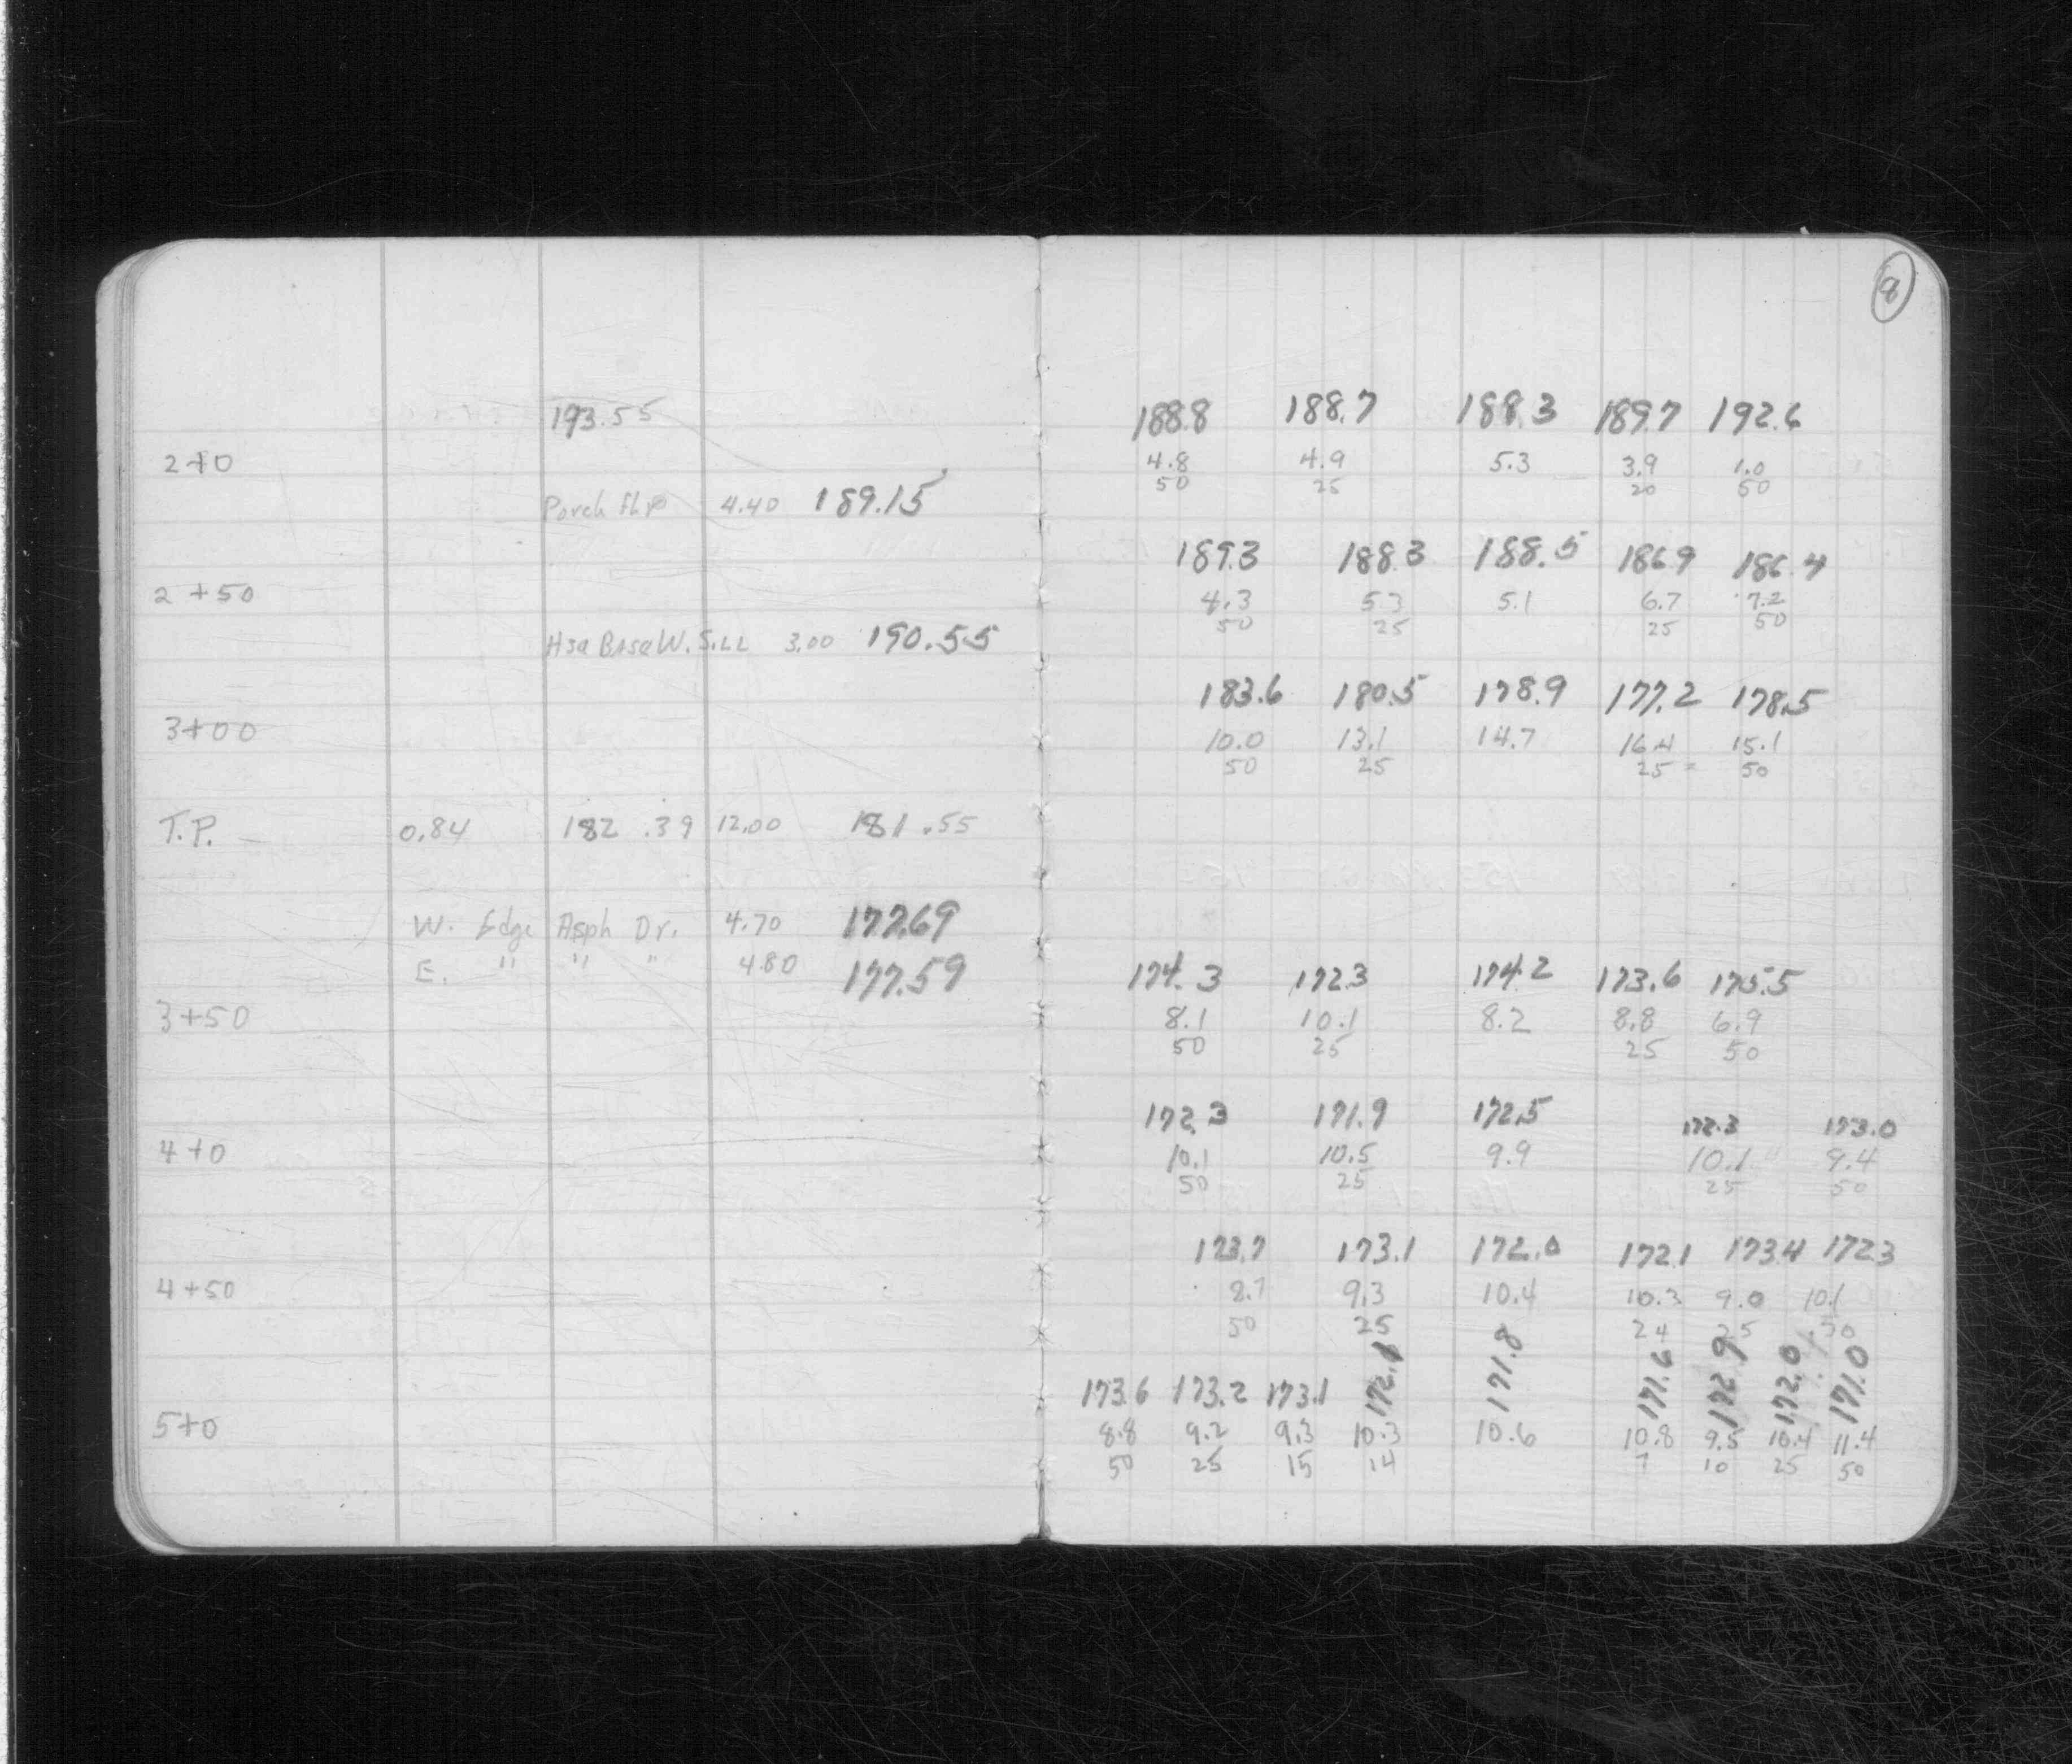 8
193.55
2+0
Porch Flr 4.40 189.15
2+50
Hse Base W. Sill 3.00 190.55
3+00
T.P. 0.84 182.39 12.00 181.55
W. Edge Asph Dr. 4.70 177.69
E. " " " 4.80 177.59
3+50
4+0
4+50
5+0
188.8 188.7 188.3 189.7 192.6
4.8 4.9 5.3 3.9 1.0
50 25 20 50
189.3 188.3 188.5 186.9 186.4
4.3 5.3 5.1 6.7 7.2
50 25 25 50
183.6 180.5 178.9 177.2 178.5
10.0 13.1 14.7 16.4 15.1
50 25 25 50
174.3 172.3 174.2 173.6 175.5
8.1 10.1 8.2 8.8 6.9
50 25 25 50
172.3 171.9 172.5 172.3 173.0
10.1 10.5 9.9 10.1 9.4
50 25 25 50
173.7 173.1 172.0 172.1 173.4 172.3
8.7 9.3 10.4 10.3 9.0 10.1
50 25 24 25 50
173.6 173.2 173.1 172.1 171.8 171.6 172.9 172.0 171.0
8.8 9.2 9.3 10.3 10.6 10.8 9.5 10.4 11.4
50 25 15 14 7 10 25 50